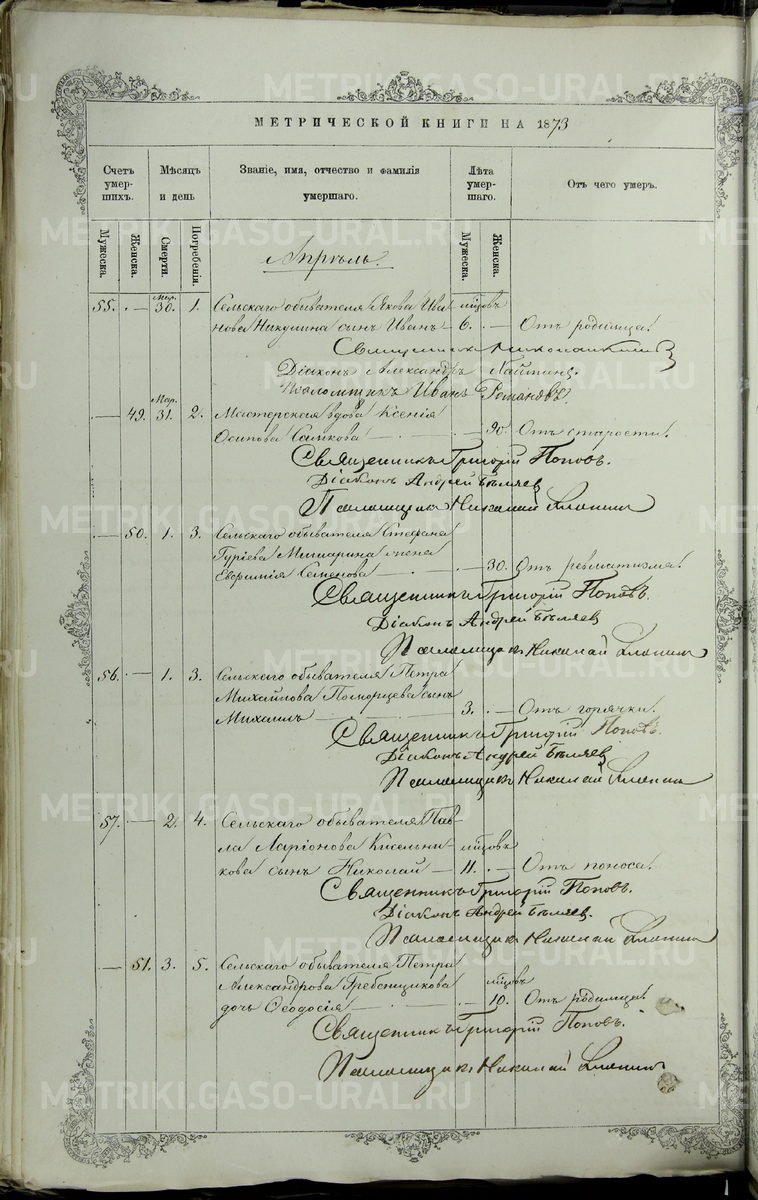 МЕТРИЧЕСКОЙ КНИГИ НА 1873
Счетъ умер-шихъ.
Мѣсяцъ и день
Званіе, имя, отчество и фамилія умершаго.
Лѣта умер-шаго.
Отъ чего умеръ.
Мужеска. Женска. Смерти. Погребенія. Мужеска. Женска.
Апрѣль.
Мар.
55. — 30. 1. Сельскаго обывателя Якова Ива- мѣсяцовъ
нова Никулина сынъ Иванъ 6. — Отъ родимца.
Священникъ
Діаконъ Александръ
Псаломщикъ Иванъ Романовъ.
Мар.
— 49. 31. 2. Мастерская вдова Ксенія
Осипова Сажкова — — 90. Отъ старости.
Священникъ Григорій Поповъ.
Діаконъ Андрей Бѣляев
Псаломщикъ Николай
— 50. 1. 3. Сельскаго обывателя Стефана
Гуріева Мишарина жена
Евфимія Семенова — — 30. Отъ ревматизма.
Священникъ Григорій Поповъ.
Діаконъ Андрей Бѣляев
Псаломщикъ Николай
56. — 1. 3. Сельскаго обывателя Петра
Михайлова Поморцева сынъ
Михаилъ — 3. — Отъ горячки.
Священникъ Григорій Поповъ.
Діаконъ Андрей Бѣляев
Псаломщикъ Николай
57. — 2. 4. Сельскаго обывателя Пав-
ла Ларіонова Кисельни- мѣсяцовъ
кова сынъ Николай — 11. — Отъ поноса.
Священникъ Григорій Поповъ.
Діаконъ Андрей Бѣляев.
Псаломщикъ Николай
— 51. 3. 5. Сельскаго обывателя Петра
Александрова Гребенщикова мѣсяцовъ
дочь Ѳеодосія — — 10. Отъ родимца.
Священникъ Григорій Поповъ.
Псаломщикъ Николай
METRIKI.GASO-URAL.RU